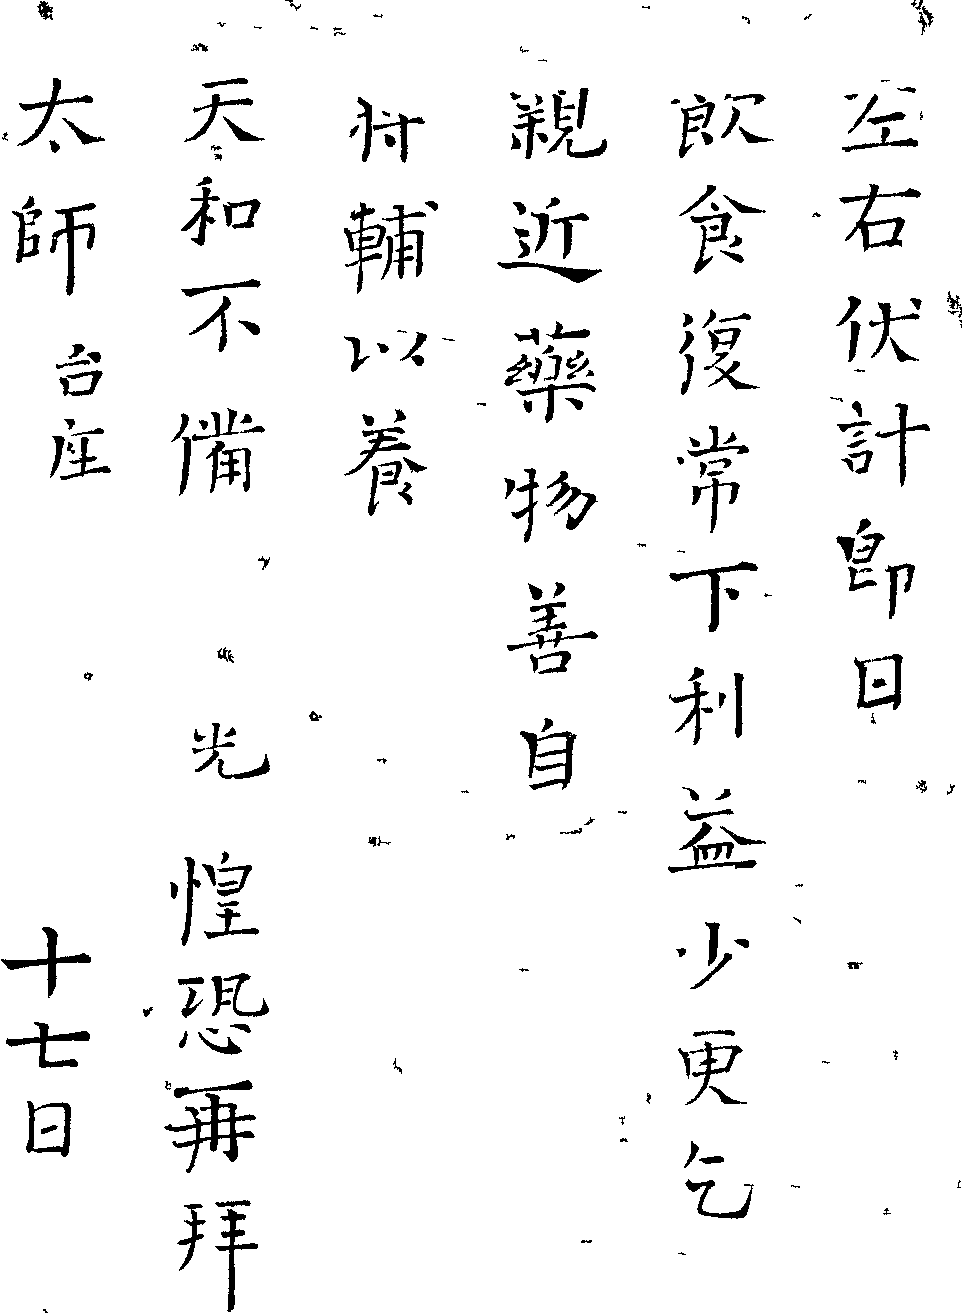 左右伏計即日
飲食復常下利益少更乞
親近藥物善自
将輔以養
天和不備 光 惶恐再拜
太師 台座 十七日